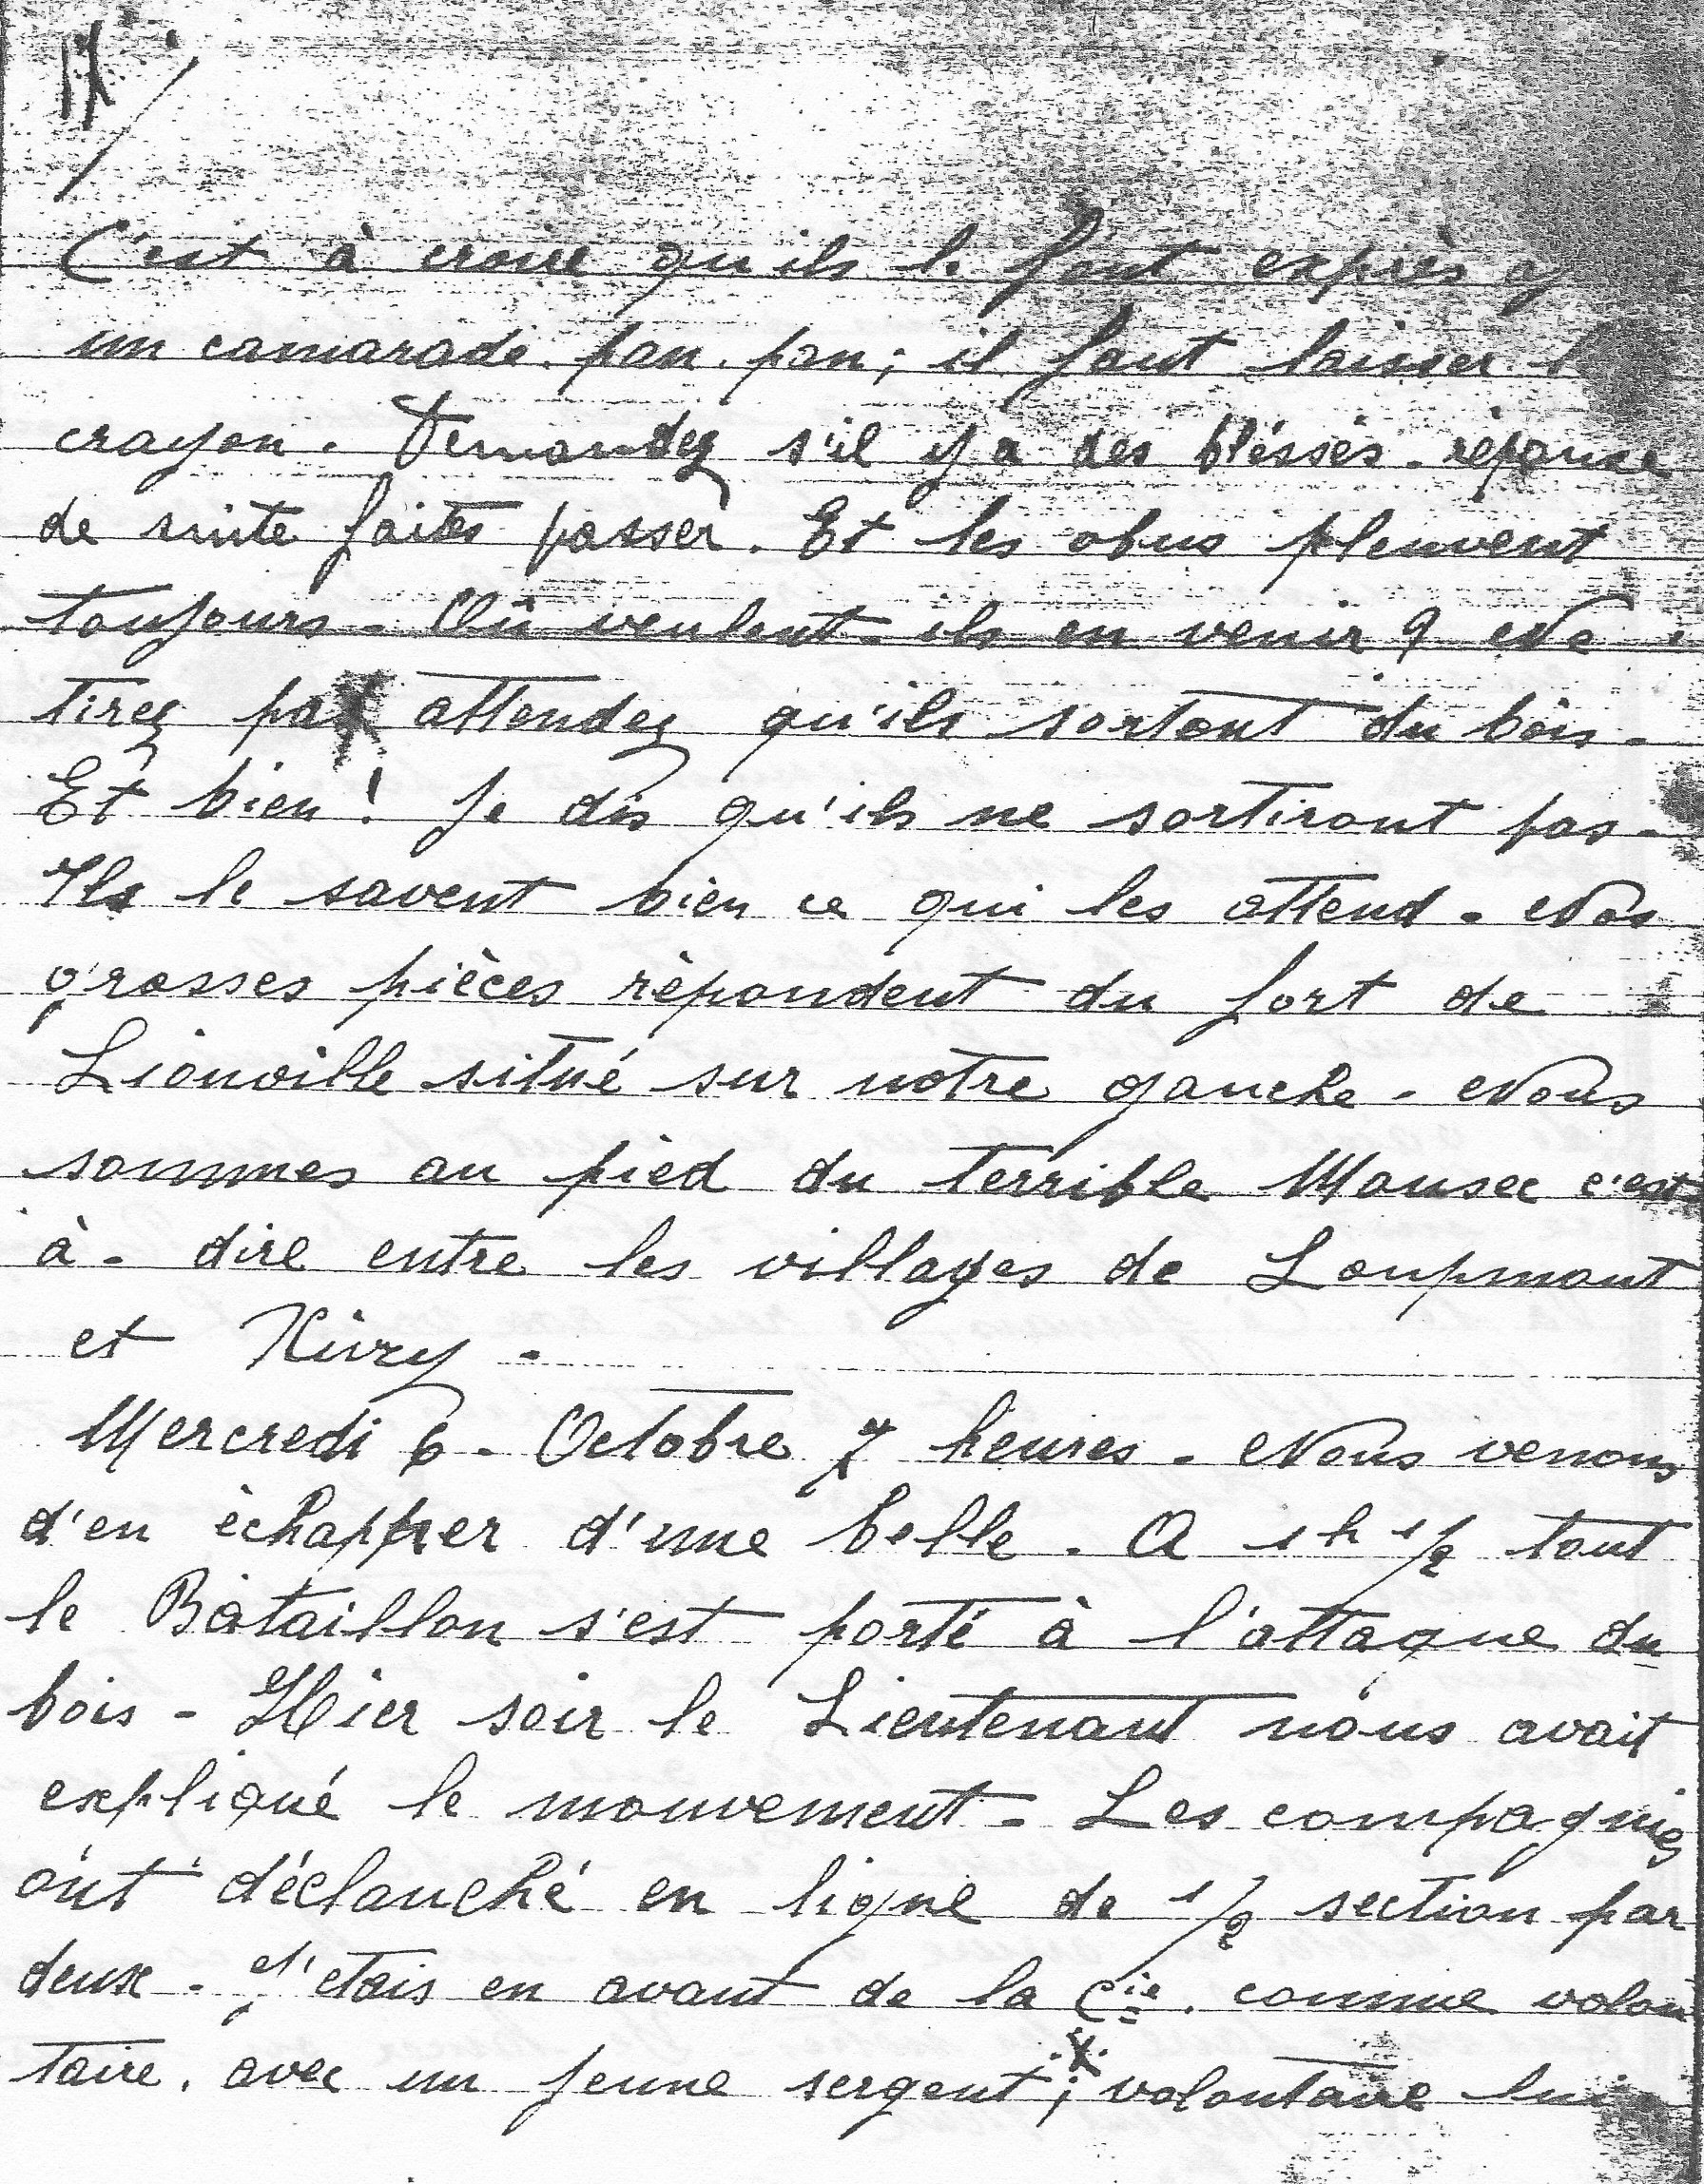 17
C'est à croire qu'ils le font exprès
un camarade. pan. pan; il faut laisser
crayon. Demandez s'il y a des bléssés. réponse
de suite faites passer. Et les obus pleuvent
toujours. Où veulent-ils en venir ? Ne
tirez pas attendez qu'ils sortent du bois.
Et bien ! Je dis qu'ils ne sortiront pas.
Ils le savent bien ce qui les attend. Nos
grosses pièces répondent du fort de
Liouville situé sur notre gauche. Nous
sommes au pied du terrible Monsec c'est
à-dire entre les villages de Loupmont
et Xivry.
Mercredi 6. Octobre 7 heures. Nous venons
d'en échapper d'une belle. A 1 h 1/2 tout
le Bataillon s'est porté à l'attaque du
bois - Hier soir le Lieutenant nous avait
expliqué le mouvement. Les compagnies
ont déclanché en ligne de 1/2 section par
deux. J'etais en avant de la Cie. comme volon
taire. avec un jeune sergent; volontaire lui